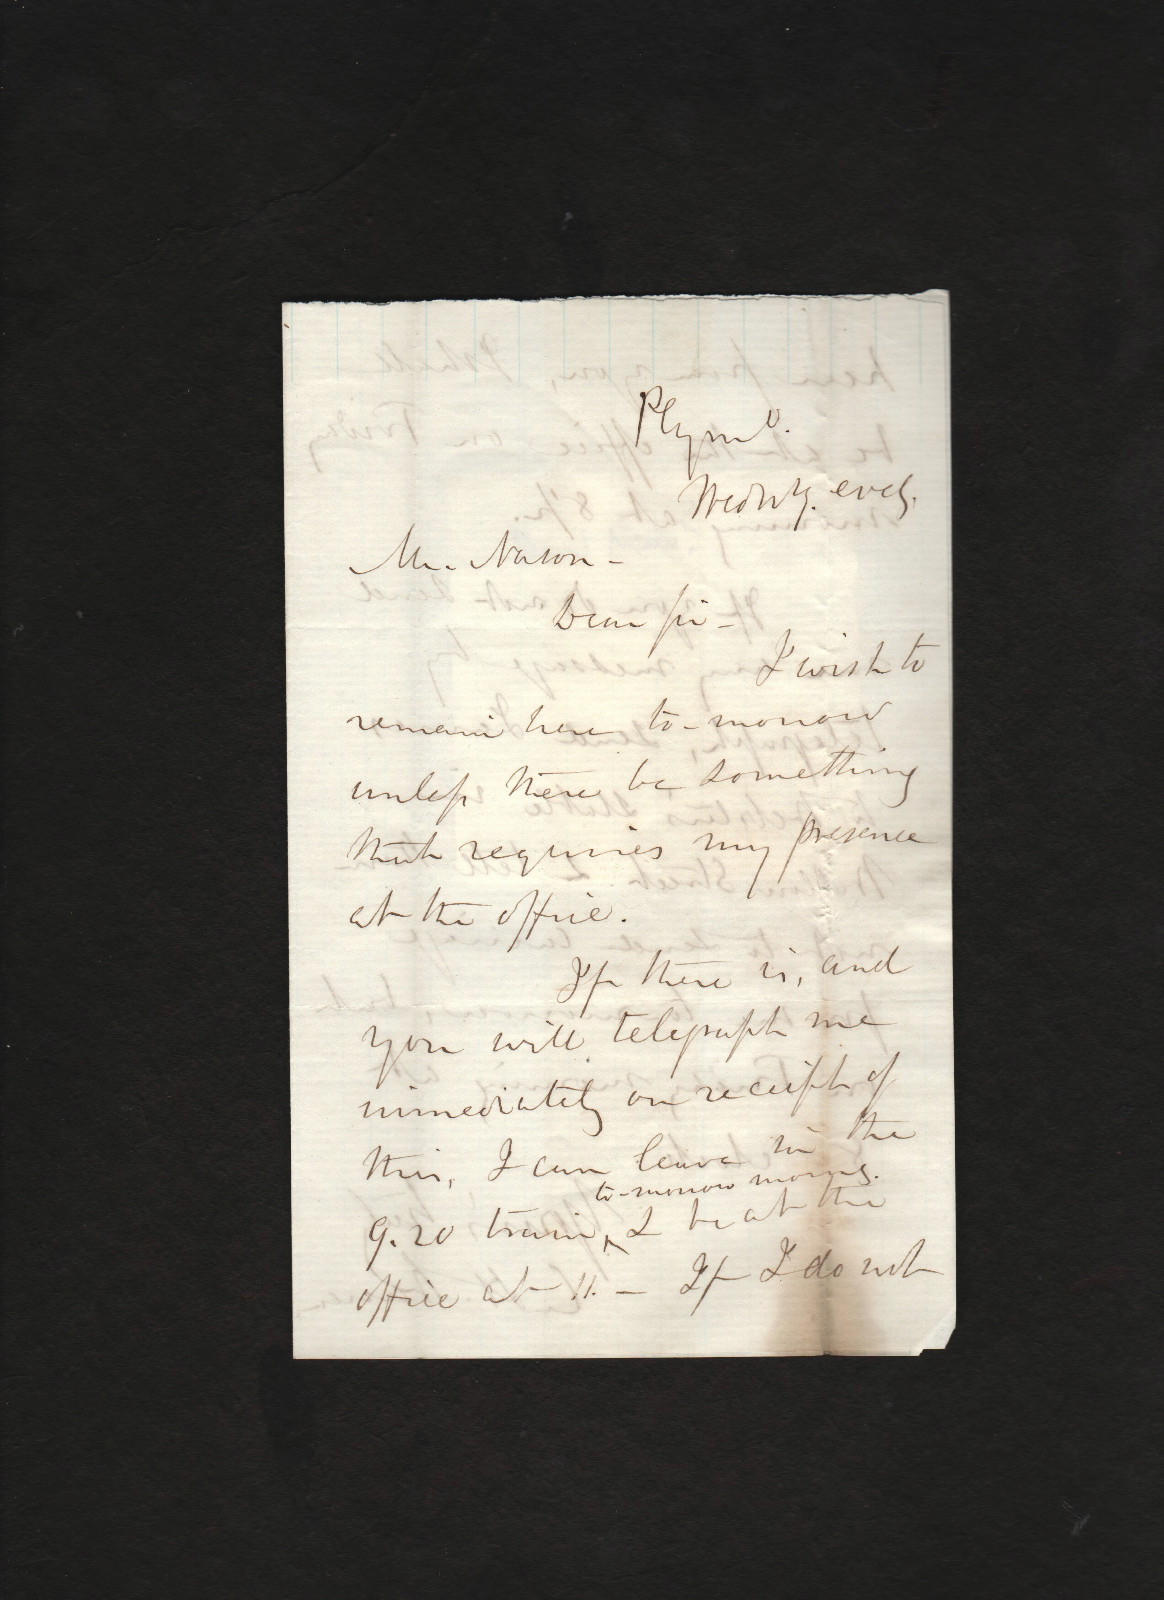 Plymo.
Wednsdy. eveg.
Mr. Nason -
Dear Sir -
I wish to
remain here to-morrow
unless there be something
that requires my presence
at the office.
If there is, and
you will telegraph me
immediately on receipt of
this, I can leave in the
to-morrow morng.
9.20 train, & be at the
office at 11. - If I do not